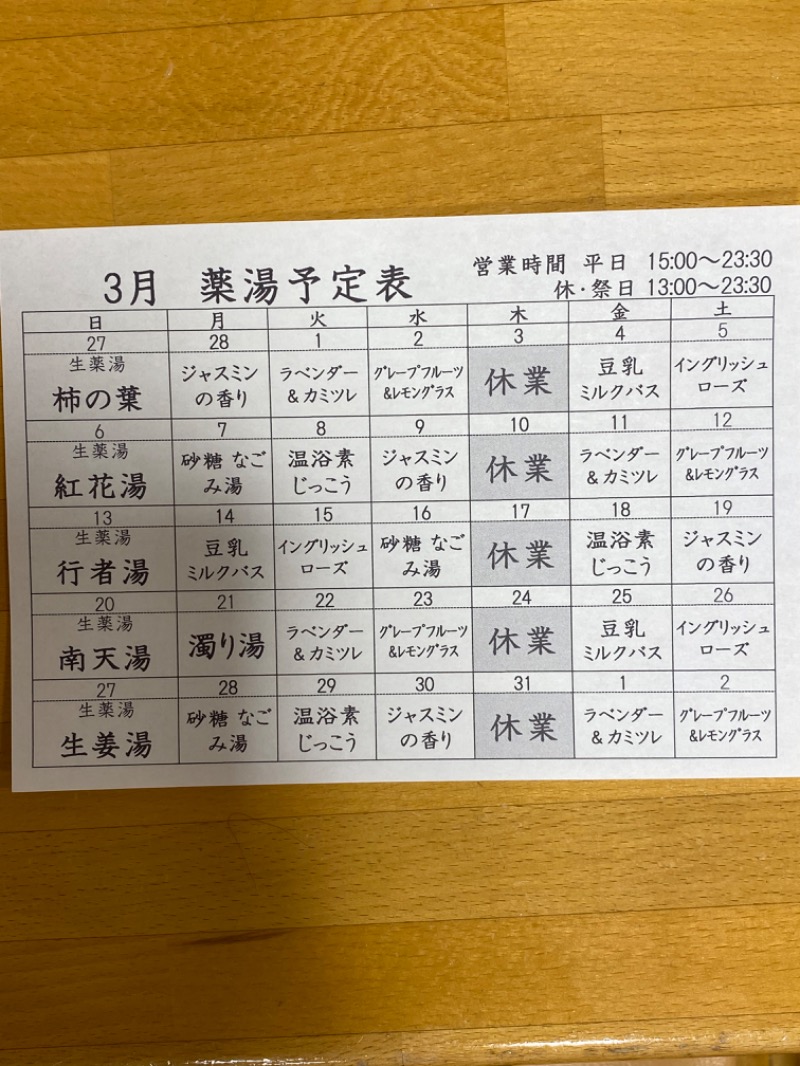 3月 薬湯予定表
営業時間 平日 15:00～23:30
休・祭日 13:00～23:30
日 月 火 水 木 金 土
27 28 1 2 3 4 5
生薬湯
柿の葉
ジャスミン
の香り
ラベンダー
&カミツレ
グレープフルーツ
&レモングラス
休業
豆乳
ミルクバス
イングリッシュ
ローズ
6 7 8 9 10 11 12
生薬湯
紅花湯
砂糖 なご
み湯
温浴素
じっこう
ジャスミン
の香り
休業
ラベンダー
&カミツレ
グレープフルーツ
&レモングラス
13 14 15 16 17 18 19
生薬湯
行者湯
豆乳
ミルクバス
イングリッシュ
ローズ
砂糖 なご
み湯
休業
温浴素
じっこう
ジャスミン
の香り
20 21 22 23 24 25 26
生薬湯
南天湯
濁り湯
ラベンダー
&カミツレ
グレープフルーツ
&レモングラス
休業
豆乳
ミルクバス
イングリッシュ
ローズ
27 28 29 30 31 1 2
生薬湯
生姜湯
砂糖 なご
み湯
温浴素
じっこう
ジャスミン
の香り
休業
ラベンダー
&カミツレ
グレープフルーツ
&レモングラス